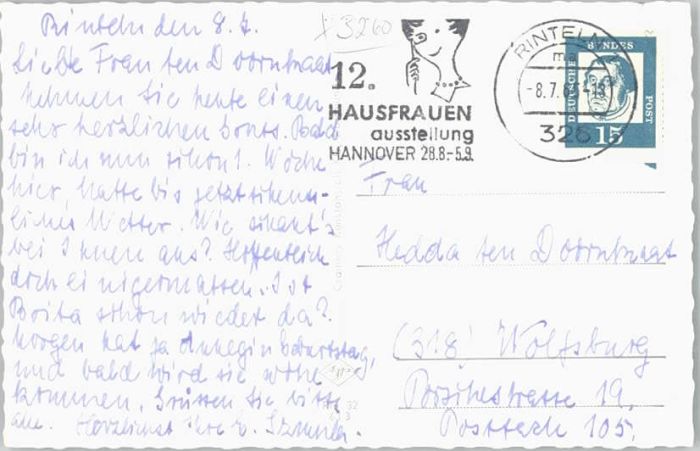 Rinteln den 8. 7.
Liebe Frau ten Doornkaat
nehmen Sie heute einen
sehr herzlichen Gruss. Bald
bin ich nun schon 1. Woche
hier, hatte bis jetzt
liches Wetter. Wie schaut's
bei Ihnen aus? Hoffentlich
doch einigermassen. Ist
Brita schon wieder da?
Morgen hat ja Geburtstag,
und bald wird sie wohl
kommen. Grüssen Sie bitte
alle. Herzlichst Ihre
3260
12.
HAUSFRAUEN
ausstellung
HANNOVER 28.8.-5.9.
RINTELN
-8.7.
326
DEUTSCHE
BUNDES
POST
15
Frau
Hedda ten Doornkaat
(318) Wolfsburg
Porschestrasse 19.
Postfach 105.